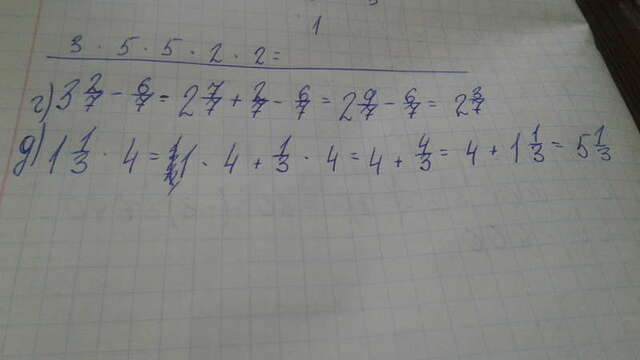 1
3 · 5 · 5 · 2 · 2 =
г) 3 2/7 - 6/7 = 2 7/7 + 2/7 - 6/7 = 2 9/7 - 6/7 = 2 3/7
д) 1 1/3 · 4 = 1 · 4 + 1/3 · 4 = 4 + 4/3 = 4 + 1 1/3 = 5 1/3